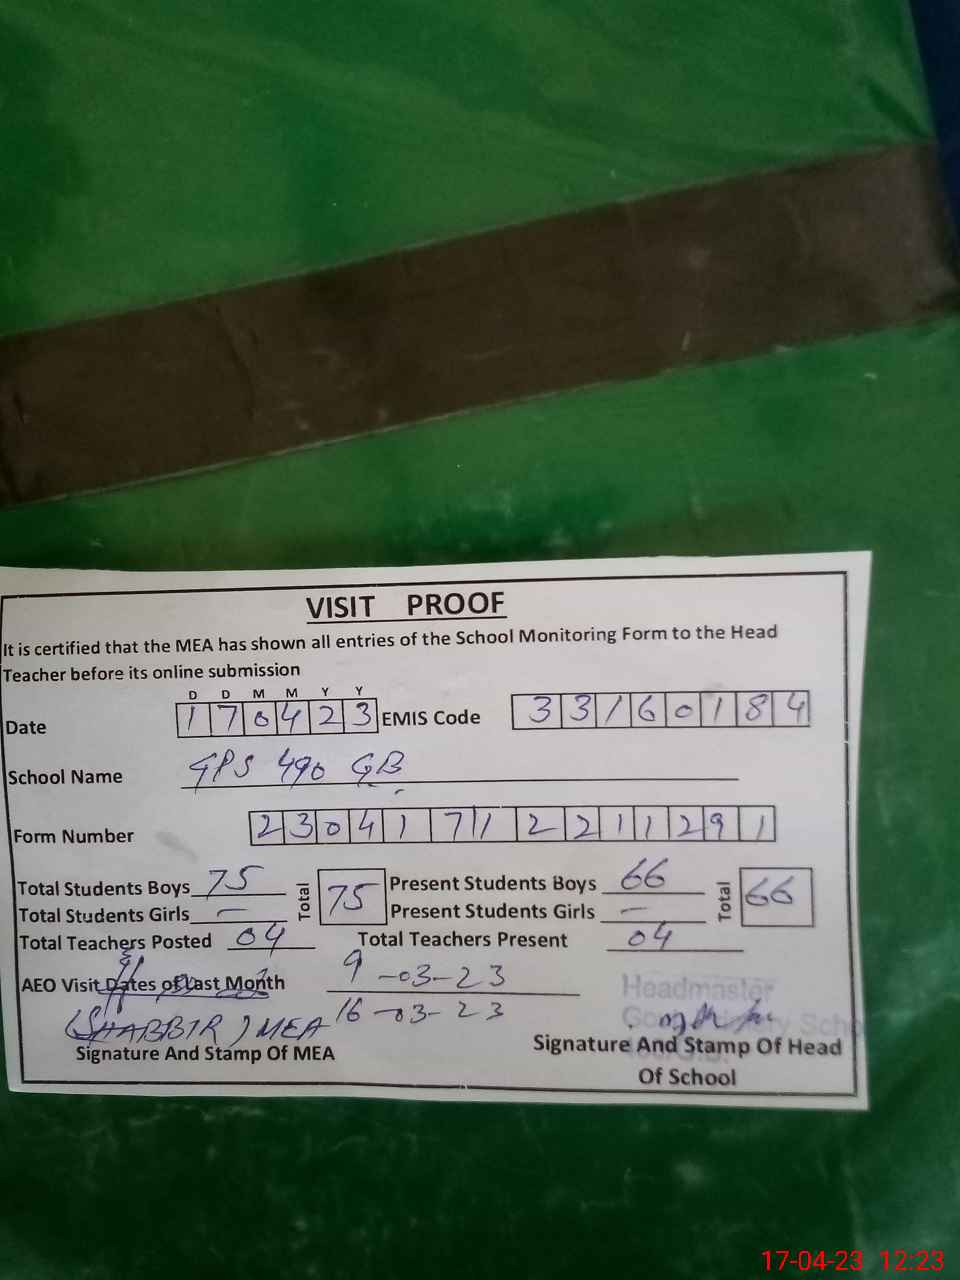 VISIT PROOF
It is certified that the MEA has shown all entries of the School Monitoring Form to the Head
Teacher before its online submission
D D M M Y Y
Date 1 7 0 4 2 3 EMIS Code 3 3 1 6 0 1 8 4
School Name GPS 490 GB
Form Number 2 3 0 4 1 7 1 2 2 1 1 2 9 1
Total Students Boys 75 Total 75 Present Students Boys 66 Total 66
Total Students Girls — Present Students Girls —
Total Teachers Posted 04 Total Teachers Present 04
AEO Visit Dates of Last Month 9-03-23
16-03-23
Headmaster
(SHABBIR) MEA
Signature And Stamp Of MEA
Signature And Stamp Of Head
Of School
17-04-23 12:23